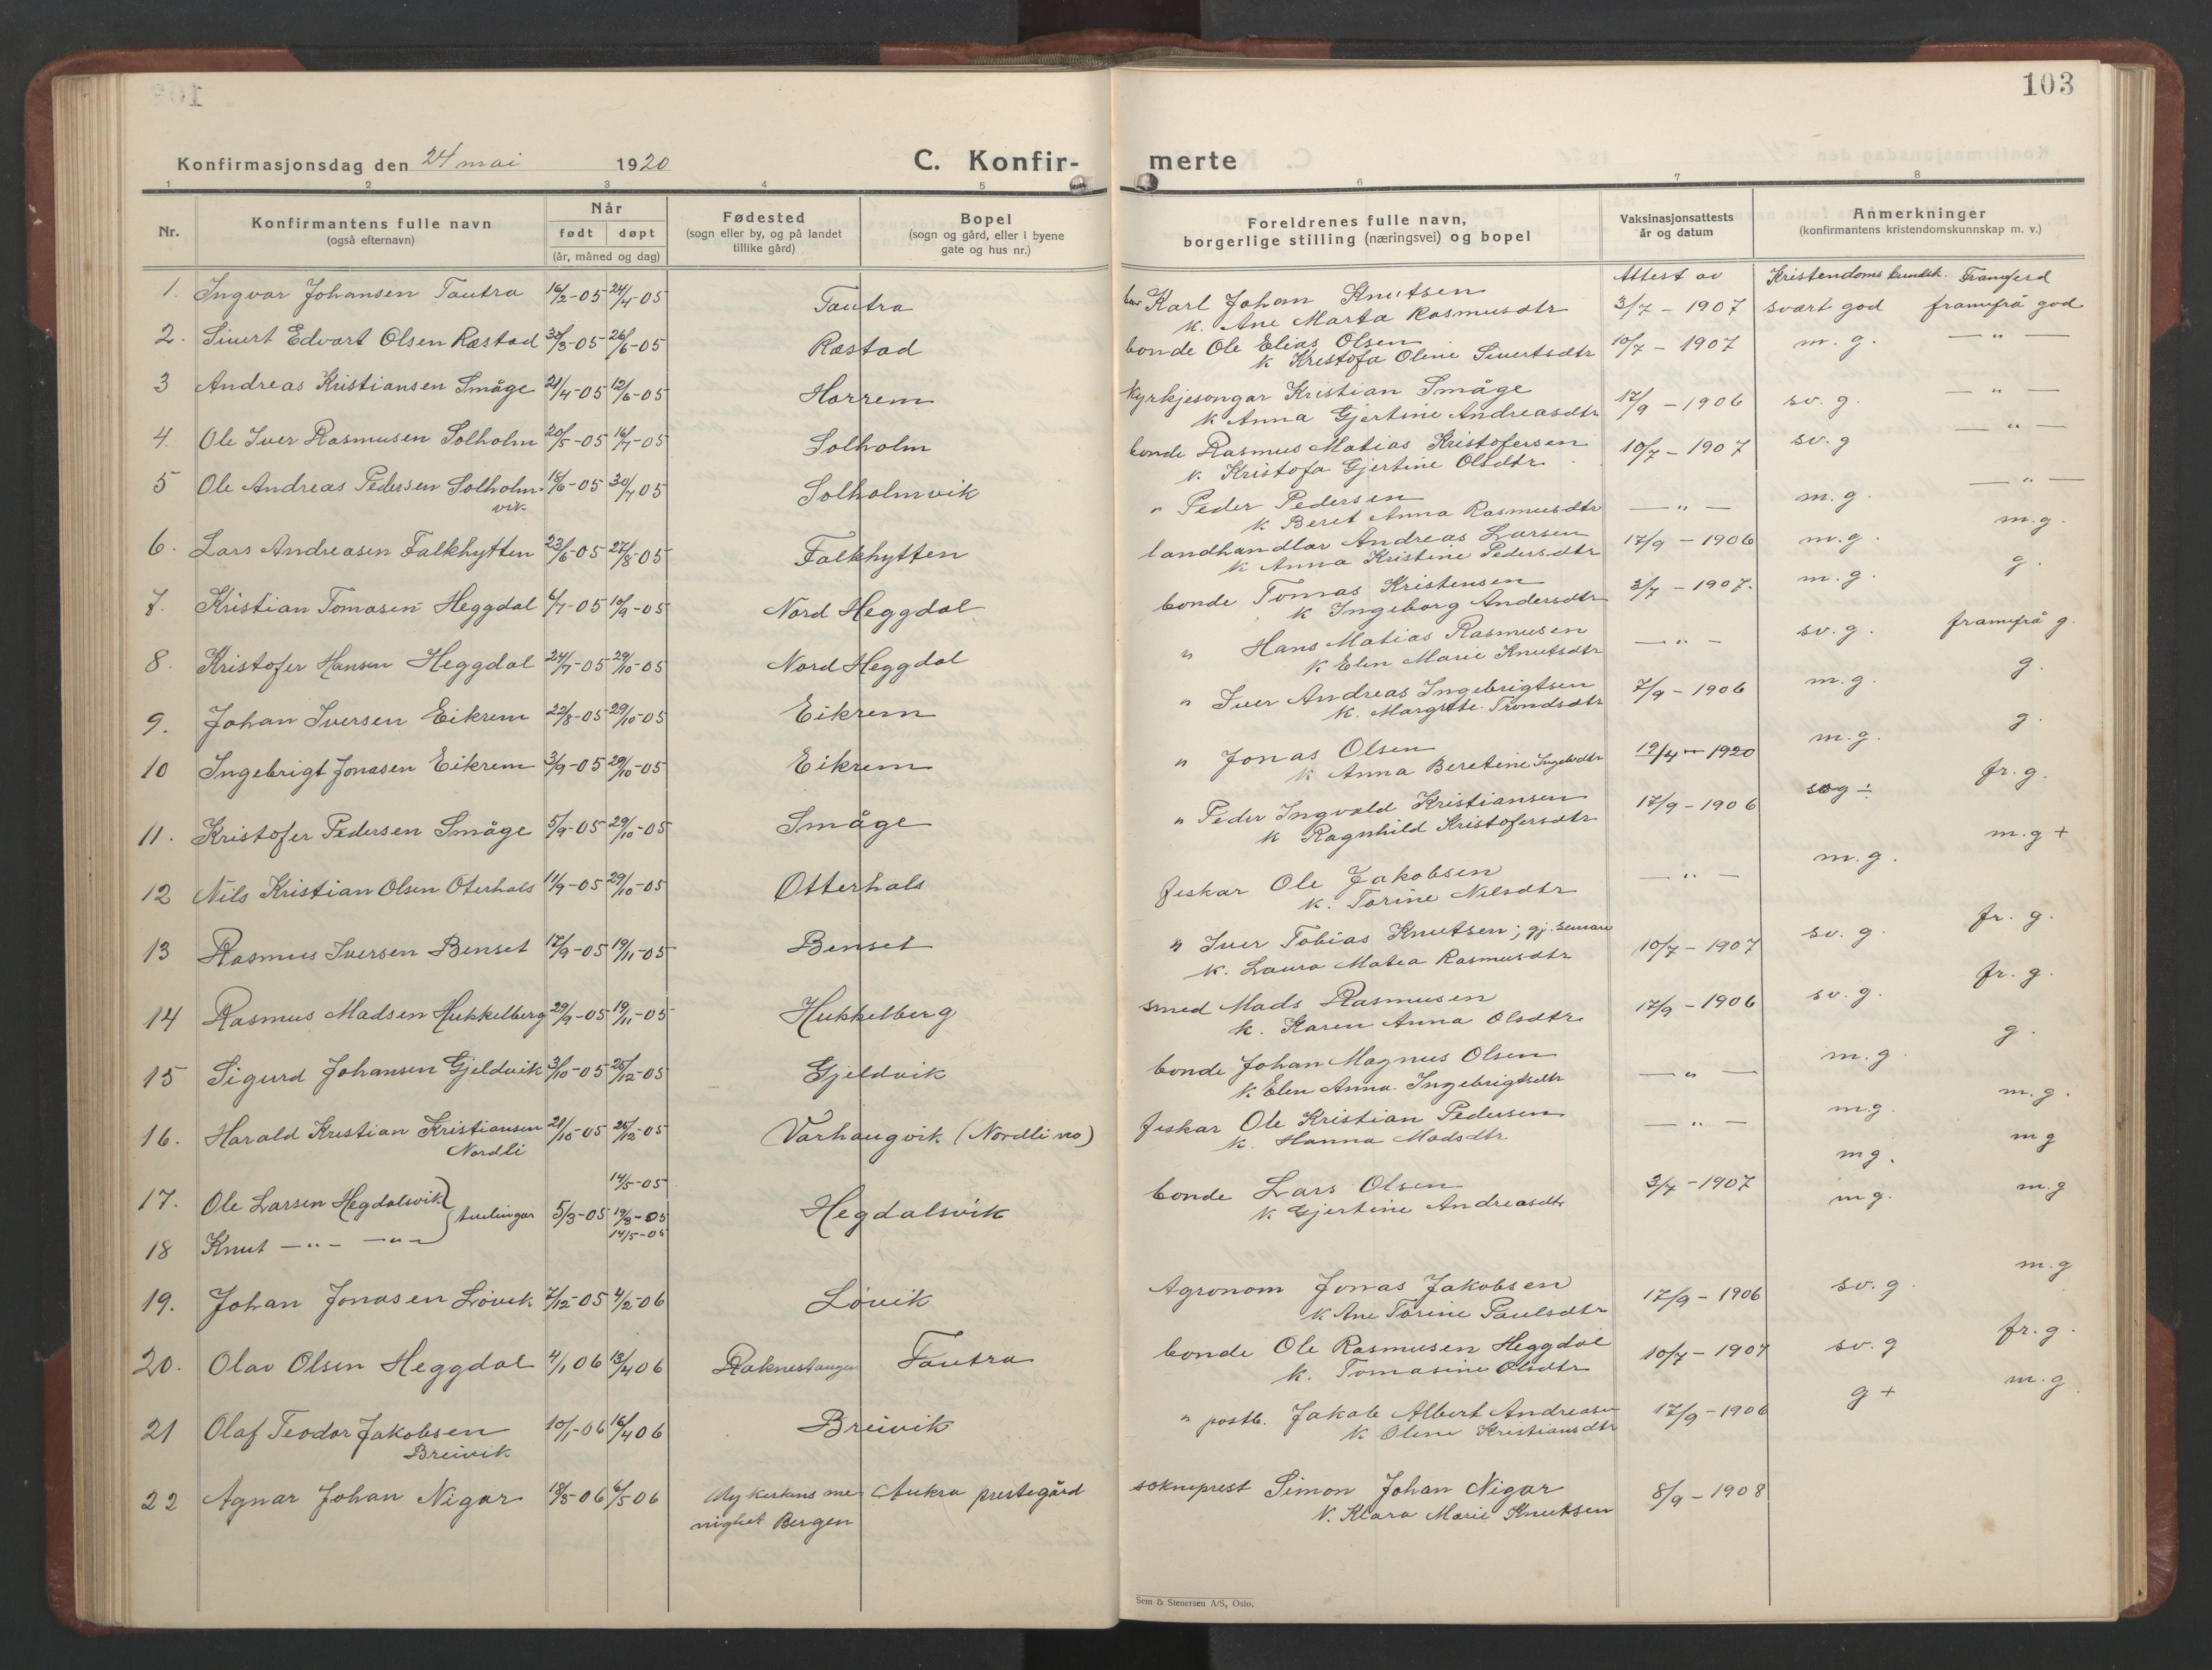 103
Konfirmasjonsdag den 24 mai 1920
C. Konfir-
merte
1 2 3 4 5 6 7 8
Nr.
Konfirmantens fulle navn
(også efternavn)
Når
født døpt
(år, måned og dag)
Fødested
(sogn eller by, og på landet
tillike gård)
Bopel
(sogn og gård, eller i byene
gate og hus nr.)
Foreldrenes fulle navn,
borgerlige stilling (næringsvei) og bopel
Vaksinasjonsattests
år og datum
Anmerkninger
(konfirmantens kristendomskunnskap m. v.)
Attest av Kristendoms kundsk. Framferd
1. Ingvar Johansen Tautra 16/2-05 24/4-05 Tautra Karl Johan Knutsen 3/7 - 1907 svært god framifrå god
k. Ane Marta Rasmusdtr
2. Sivert Edvart Olsen Røstad 30/3-05 26/6-05 Røstad bonde Ole Elias Olsen 10/7 - 1907 m. g. — " —
k Kristofa Oline Sivertsdtr
3 Andreas Kristiansen Småge 21/4-05 12/6-05 Harrem Kyrkjesongar Kristian Småge 17/9 - 1906 sv. g. — " —
k Anna Gjertine Andreasdtr
4. Ole Iver Rasmusen Solholm 20/5-05 16/7-05 Solholm bonde Rasmus Matias Kristofersen 10/7 - 1907 sv. g — " —
k. Kristofa Gjertine Olsdtr
5 Ole Andreas Pedersen Solholm- 18/6-05 30/7 05 Solholmvik " Peder Pedersen — " — m. g. — " —
vik k Beret Anna Rasmusdtr
6. Lars Andreasen Falkhytten 23/6-05 27/8-05 Falkhytten landhandlar Andreas Larsen 17/9 - 1906 m. g. m. g.
k Anna Kristine Pedersdtr
7. Kristian Tomasen Heggdal 6/7-05 10/9-05 Nord Heggdal bonde Tomas Kristensen 3/7 - 1907. m. g. g.
k Ingeborg Andersdtr
8. Kristofer Hansen Heggdal 24/7-05 29/10-05 Nord Heggdal " Hans Matias Rasmusen — " — sv. g. framifrå g.
k Elen Marie Knutsdtr
9. Johan Iversen Eikrem 22/8-05 29/10-05 Eikrem " Iver Andreas Ingebrigtsen 7/9 - 1906 m. g. g.
k. Margrete Trondsdtr
10 Ingebrigt Jonasen Eikrem 3/9-05 29/10-05 Eikrem " Jonas Olsen 19/4 - 1920 m. g. g.
k Anna Beretine Ingebdtr
11. Kristofer Pedersen Småge 5/9-05 29/10-05 Småge " Peder Ingvald Kristiansen 17/9 - 1906 fr. g.
k Ragnhild Kristofersdtr
12 Nils Kristian Olsen Oterhals 11/9-05 29/10-05 Otterhals fiskar Ole Jakobsen — " — m. g. m. g +
k. Torine Nilsdtr
13 Rasmus Iversen Benset 17/9-05 19/11-05 Benset " Iver Tobias Knutsen; gj. 10/7 - 1907 sv. g. fr. g.
k. Laura Matea Rasmusdtr
14 Rasmus Madsen Hukkelberg 29/9-05 19/11-05 Hukkelberg smed Mads Rasmusen 17/9 - 1906 sv. g. fr. g.
k. Karen Anna Olsdtr.
15 Sigurd Johansen Gjeldvik 3/10-05 25/12-05 Gjeldvik bonde Johan Magnus Olsen — " — m. g. g.
k Elen Anna Ingebrigtsdtr
16. Harald Kristian Kristiansen 21/10-05 25/12-05 Varhaugvik (Nordli no) fiskar Ole Kristian Pedersen — " — m.g. m. g.
Nordli k. Hanna Madsdtr
14/5-05
17. Ole Larsen Hegdalsvik } tvilingar 5/3-05 19/3-05 Hegdalsvik bonde Lars Olsen 3/7 - 1907 m g. m g
14/5-05 k Gjertine Andreasdtr
18 Knut — " — — " — m g. m. g
19. Johan Jonasen Løvik 7/12-05 4/2-06 Løvik Agronom Jonas Jakobsen 17/9 - 1906 sv. g. m. g
k Ane Torine Paulsdtr
20. Olav Olsen Heggdal 4/1 06 13/4 06 Raknestangen Tautra bonde Ole Rasmusen Heggdal 10/7 - 1907 sv. g fr. g.
k. Tomasine Olsdtr
21 Olaf Teodor Jakobsen 10/1-06 16/4 06 Breivik " postb. Jakob Albert Andreasen 17/9 - 1906 g + m. g
Breivik k Oline Kristiansdtr
22 Agnar Johan Nigar 18/3-06 6/5 06 Nykirkens me- Aukra prestegård sokneprest Simon Johan Nigar 8/9 - 1908
nighet Bergen k. Klara Marie Knutsen
Sem & Stenersen A/S, Oslo.